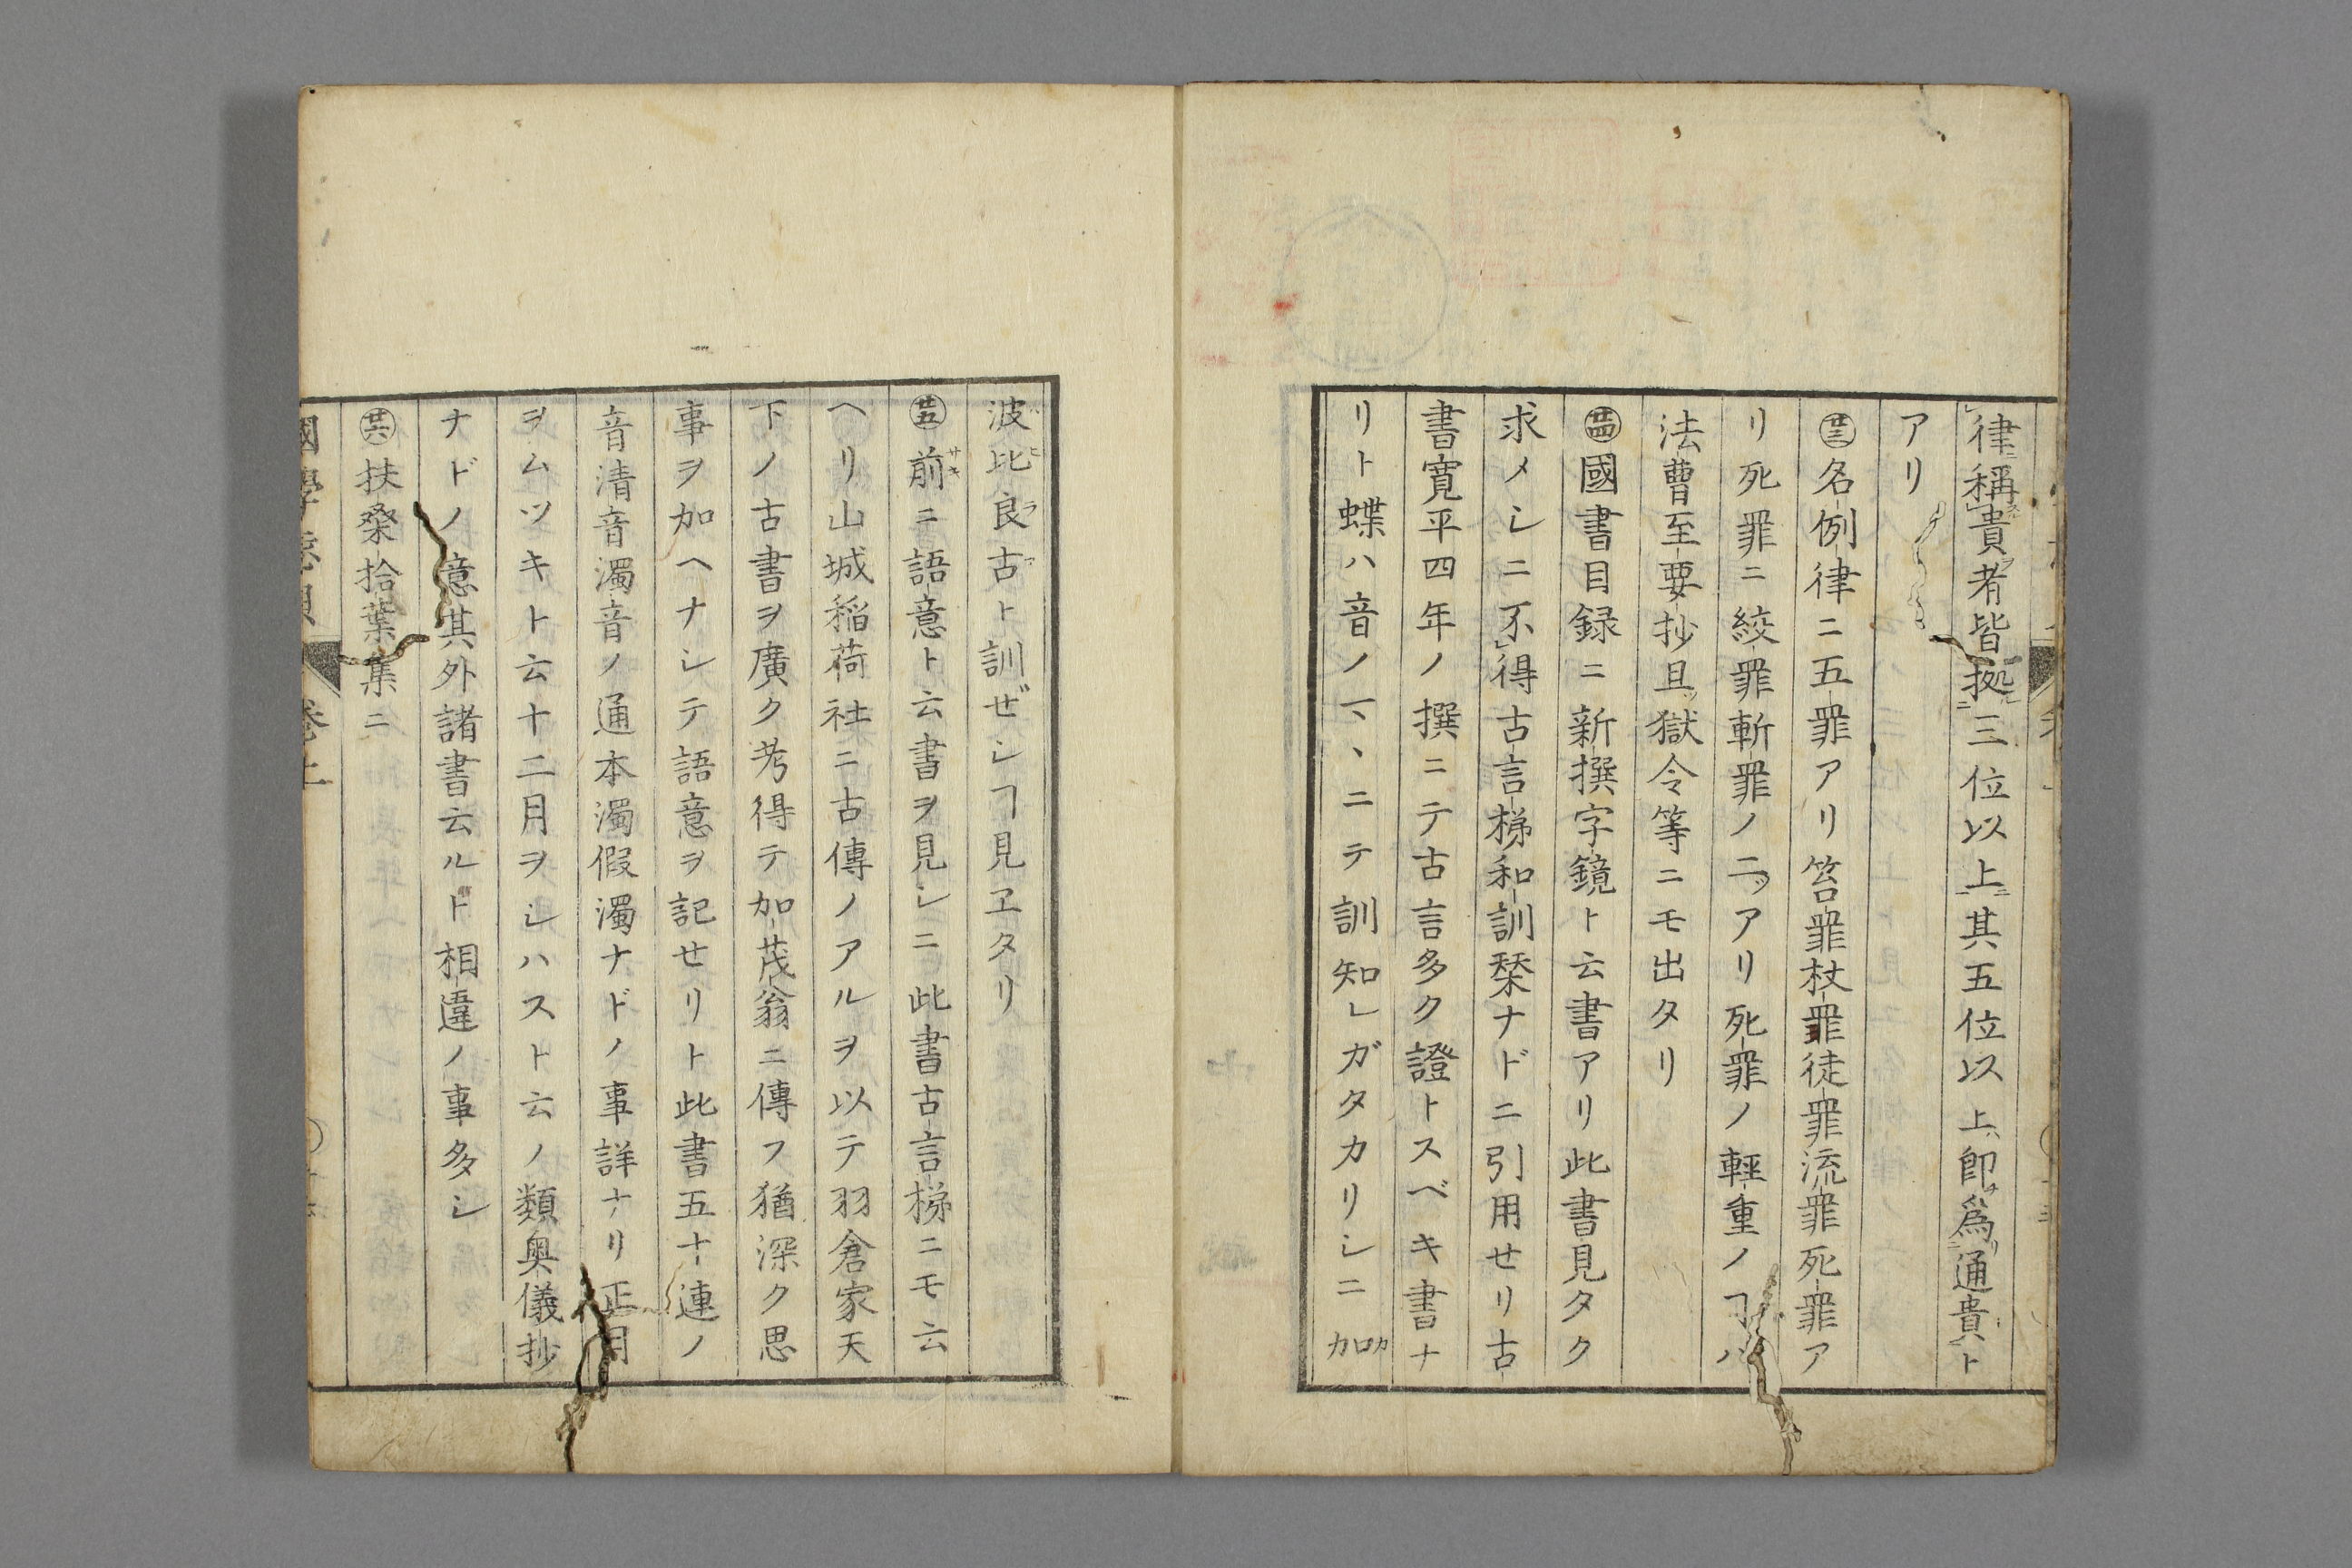 律ニ稱貴者皆拠三位以上ニ其五位以上即爲通貴ト
アリ
㊂名例律ニ五罪アリ笞罪杖罪徒罪流罪死罪ア
リ死罪ニ絞罪斬罪ノ二ツアリ死罪ノ輕重ノヿハ
法曹至要抄且ツ獄令等ニモ出タリ
國書目録ニ新撰字鏡ト云書アリ此書見タク
求メシニ不得古言梯和訓栞ナドニ引用セリ古
書寛平四年ノ撰ニテ古言多ク證トスベキ書ナ
リト蝶ハ音ノ一ヽニテ訓知レガタカリシニ加
波比良古ト訓ゼシヿ見ヱタリ
前ニ語意ト云書ヲ見シニ此書古言梯ニモ云
ヘリ山城稲荷社ニ古傳ノアルヲ以テ羽倉家天
下ノ古書ヲ廣ク考得テ加茂翁ニ傳フ猶深ク思
事ヲ加ヘナシテ語意ヲ記セリト此書五十連ノ
音清音濁音ノ通本濁假濁ナドノ事詳ナリ正月
ヲムツキト云十二月ヲシハスト云ノ類奥儀抄
ナドノ意其外諸書云ルト相違ノ事多シ
扶桑拾葉集ニ